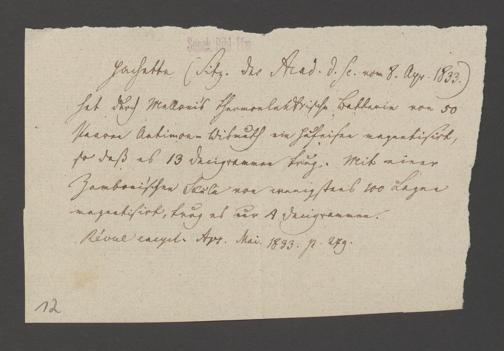 Hachette (Sitz. der Acad. d. Sc. vom 8. Apr. 1833.)
hat durch Mellonis thermoelektrische Batterie von 50
Paaren Antimon-Wismuth ein Hufeisen magnetisirt,
so daß es 13 Decigrammen trug. Mit einer
Zambonischen Säule von wenigstens 100 Lagen
magnetisirt, trug es nur 4 Decigrammen.
Révue encycl. Avr. Mai. 1833. p. 279.
12